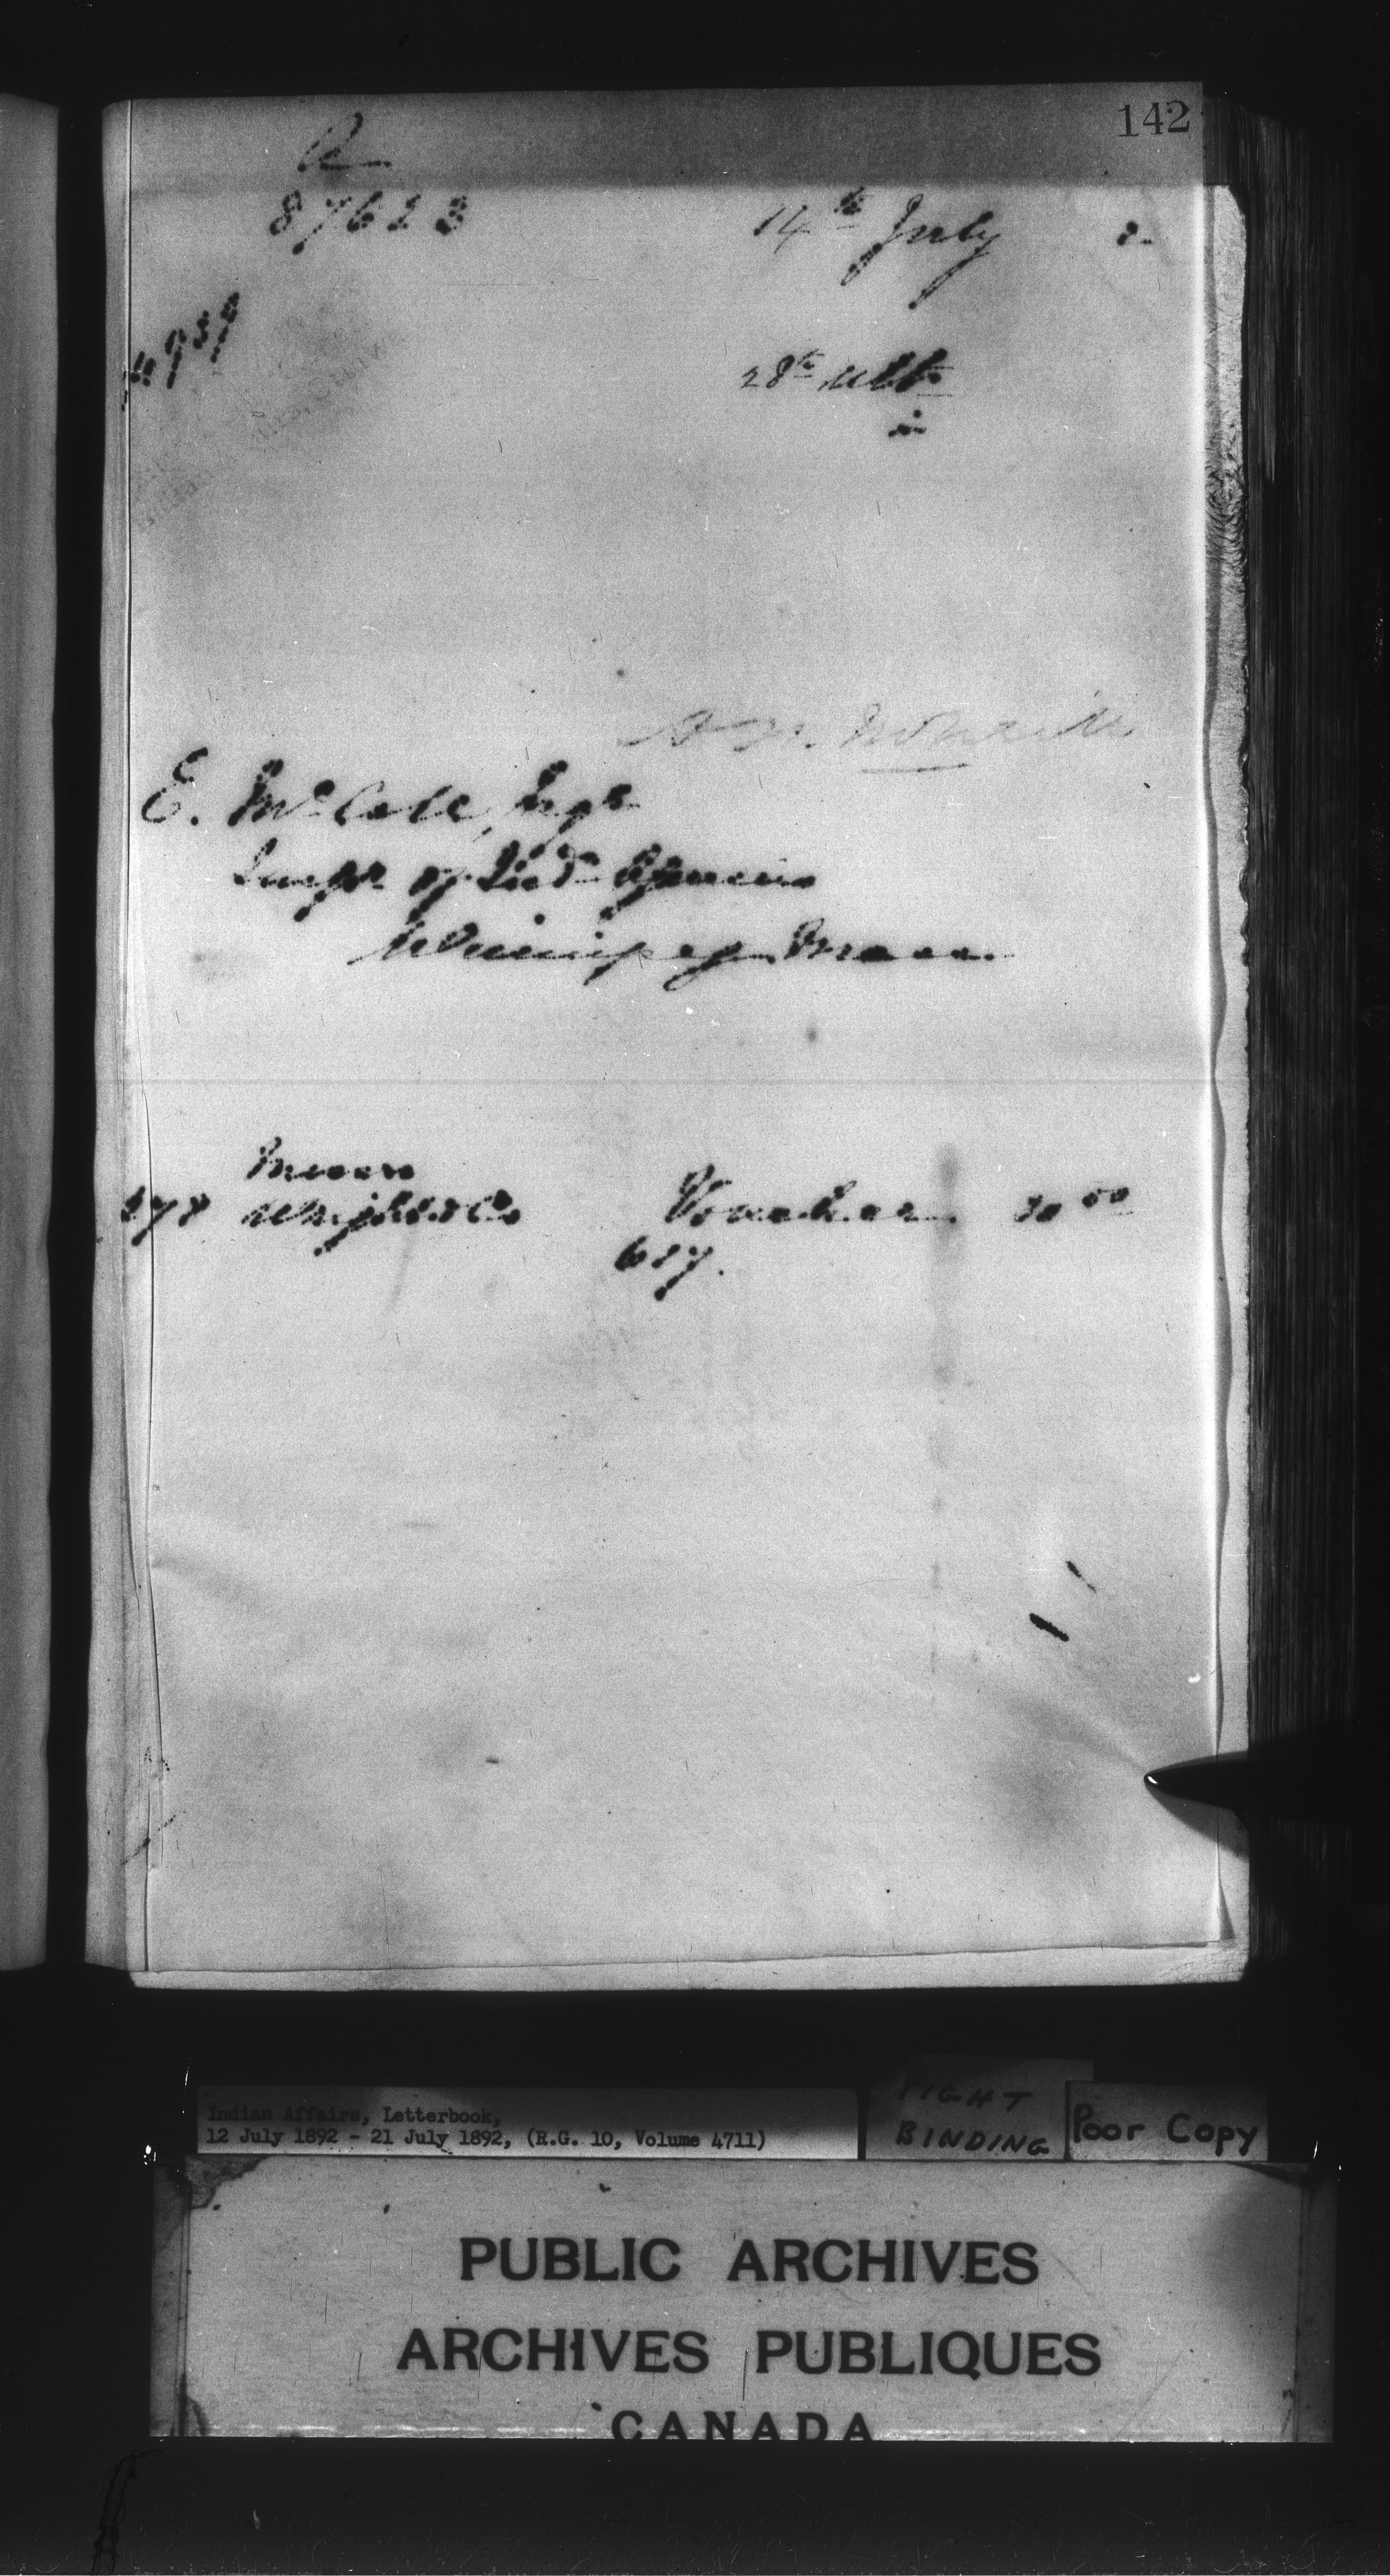 142
87623
14th July 2
28th ulto
E. McColl, Esqr
Inspr of Ind. Agencies
Winnipeg Man.
Messrs
Wright & Co Voucher
617.
Indian Affairs, Letterbook,
12 July 1892 - 21 July 1892, (R.G. 10, Volume 4711)
TIGHT
BINDING
Poor Copy
PUBLIC ARCHIVES
ARCHIVES PUBLIQUES
CANADA